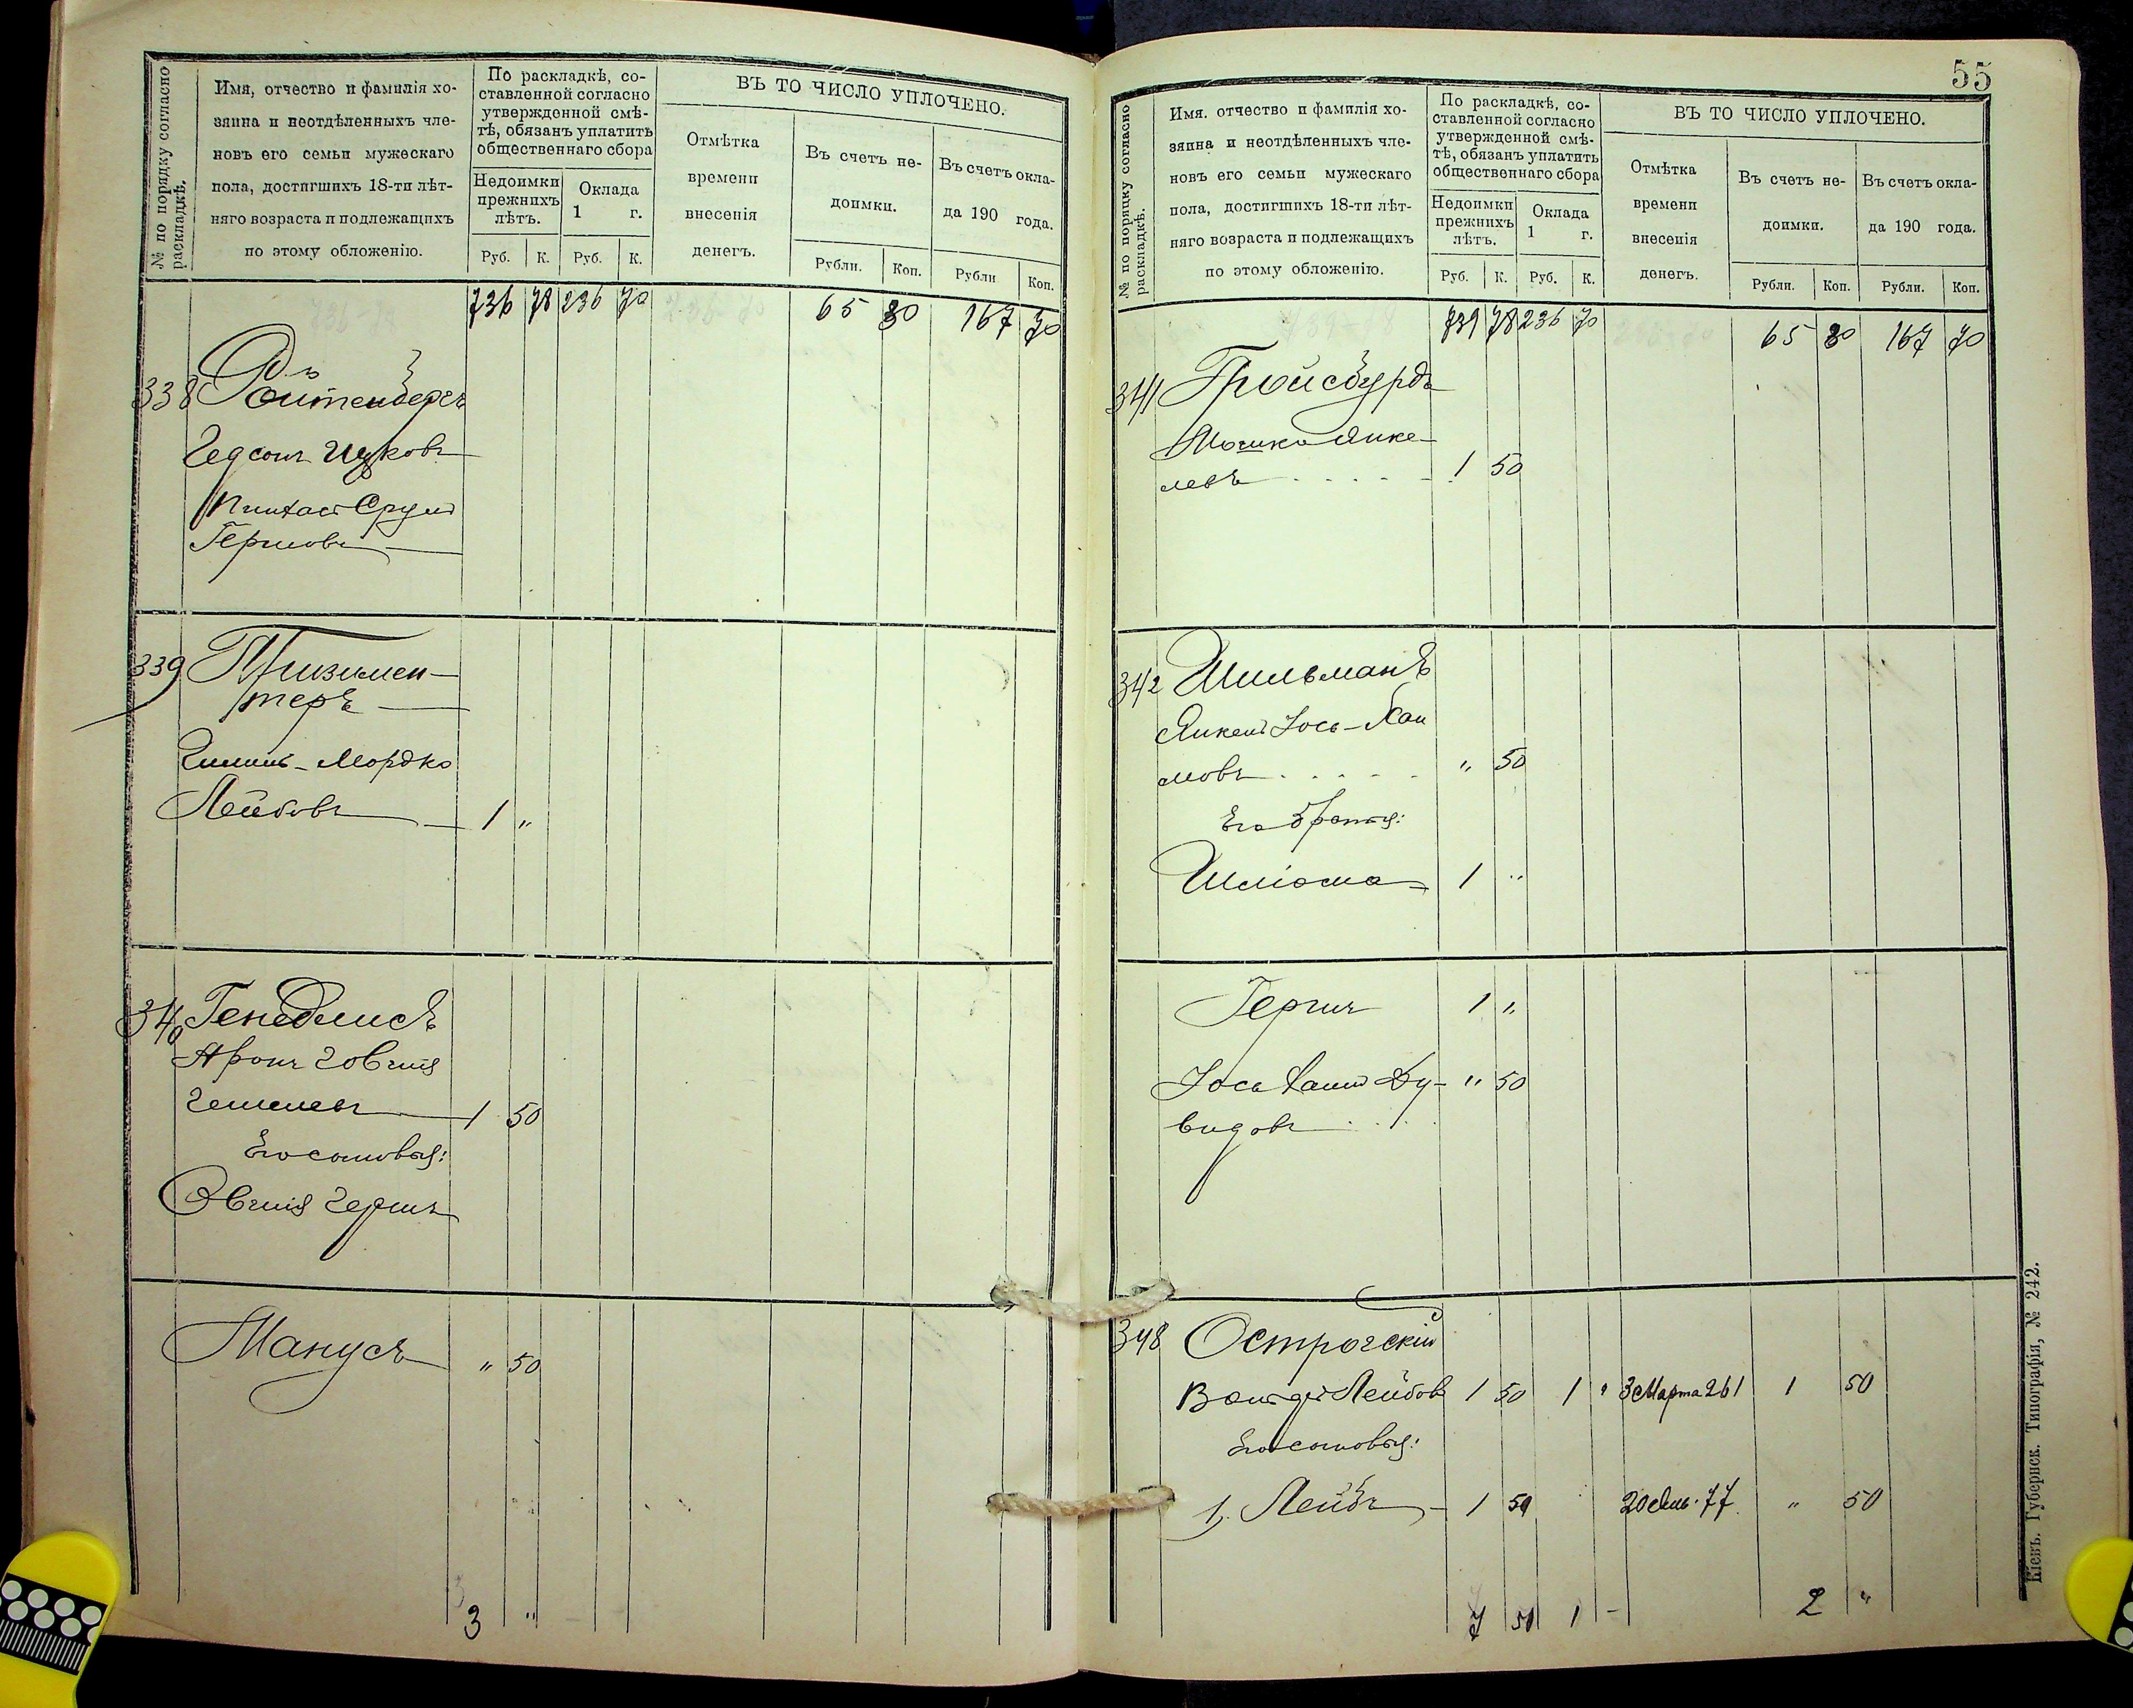 № по порядку согласно раскладкѣ.
Имя, отчество и фамилія хо-
зяина и неотдѣленныхъ чле-
новъ его семьи мужескаго
пола, достигшихъ 18-ти лѣт-
няго возраста и подлежащихъ
по этому обложенію.
По раскладкѣ, со-
ставленной согласно
утвержденной смѣ-
тѣ, обязанъ уплатить
общественнаго сбора
Недоимки
прежнихъ
лѣтъ.
Оклада
1 г.
Руб. К. Руб. К.
ВЪ ТО ЧИСЛО УПЛОЧЕНО.
Отмѣтка
времени
внесенія
денегъ.
Въ счетъ не-
доимки.
Въ счетъ окла-
да 190 года.
Рубли. Коп. Рубли Коп.
736 78 236 70 65 80 167 70
338 Ройтенбергъ
Ицковъ
Пинхас Сруль
Гершовъ
339 Призимен-
теръ
Мордко
Лейбовъ 1 "
340 Генеdлисъ
Аронъ Говшія
1 50
Его сыновья:
Овшія Гершъ
Манусъ " 50
3 "
55
№ по порядку согласно раскладкѣ.
Имя. отчество и фамилія хо-
зяина и неотдѣленныхъ чле-
новъ его семьи мужескаго
пола, достигшихъ 18-ти лѣт-
няго возраста и подлежащихъ
по этому обложенію.
По раскладкѣ, со-
ставленной согласно
утвержденной смѣ-
тѣ, обязанъ уплатить
общественнаго сбора
Недоимки
прежнихъ
лѣтъ.
Оклада
1 г.
Руб. К. Руб. К.
ВЪ ТО ЧИСЛО УПЛОЧЕНО.
Отмѣтка
времени
внесенія
денегъ.
Въ счетъ не-
доимки.
Въ счетъ окла-
да 190 года.
Рубли. Коп. Рубли. Коп.
739 78 236 70 65 80 167 70
341 Гройсбурдъ
Мошко Янке-
левъ 1 50
342 Шильманъ
Янкель Іось-Хаи
мовъ " 50
Его братья:
Шліома 1 "
Гершъ 1 "
Іось Хаимъ Ду- " 50
видовъ
348 Острогскій
Вольдъ Лейбовъ 1 50 1 " 3 Марта 261 1 50
Его сыновья:
1, Лейбъ 1 50 77 " 50
7 50 1 - 2 "
Кіевъ. Губернск. Типографія, № 242.